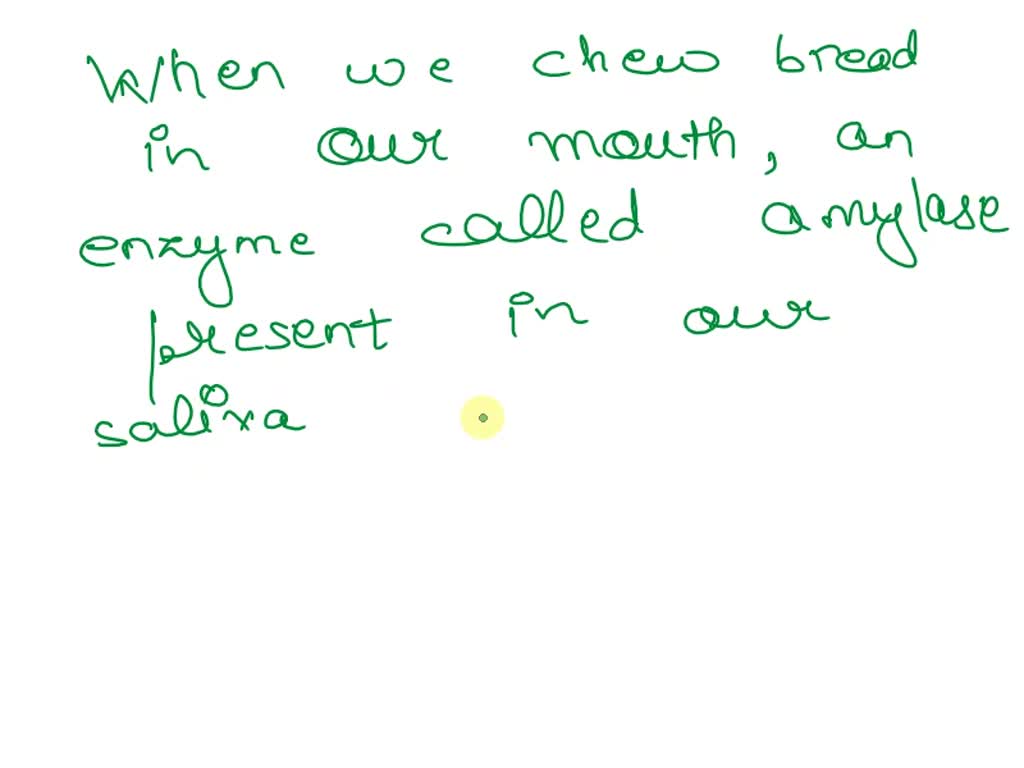 When we chew bread
in our mouth, an
enzyme called amylase
present in our
saliva